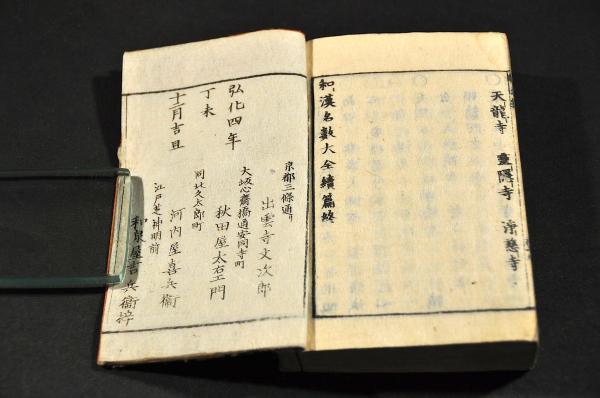 天龍寺 靈隱寺 淨慈寺
和漢名數大全續篇終
弘化四年
丁未
十二月吉旦
京都三條通リ
出雲寺文次郎
大坂心齋橋通安同寺町
秋田屋太右エ門
同北久太郎町
河内屋喜兵衞
江戸芝神明前
和泉屋吉兵衞梓